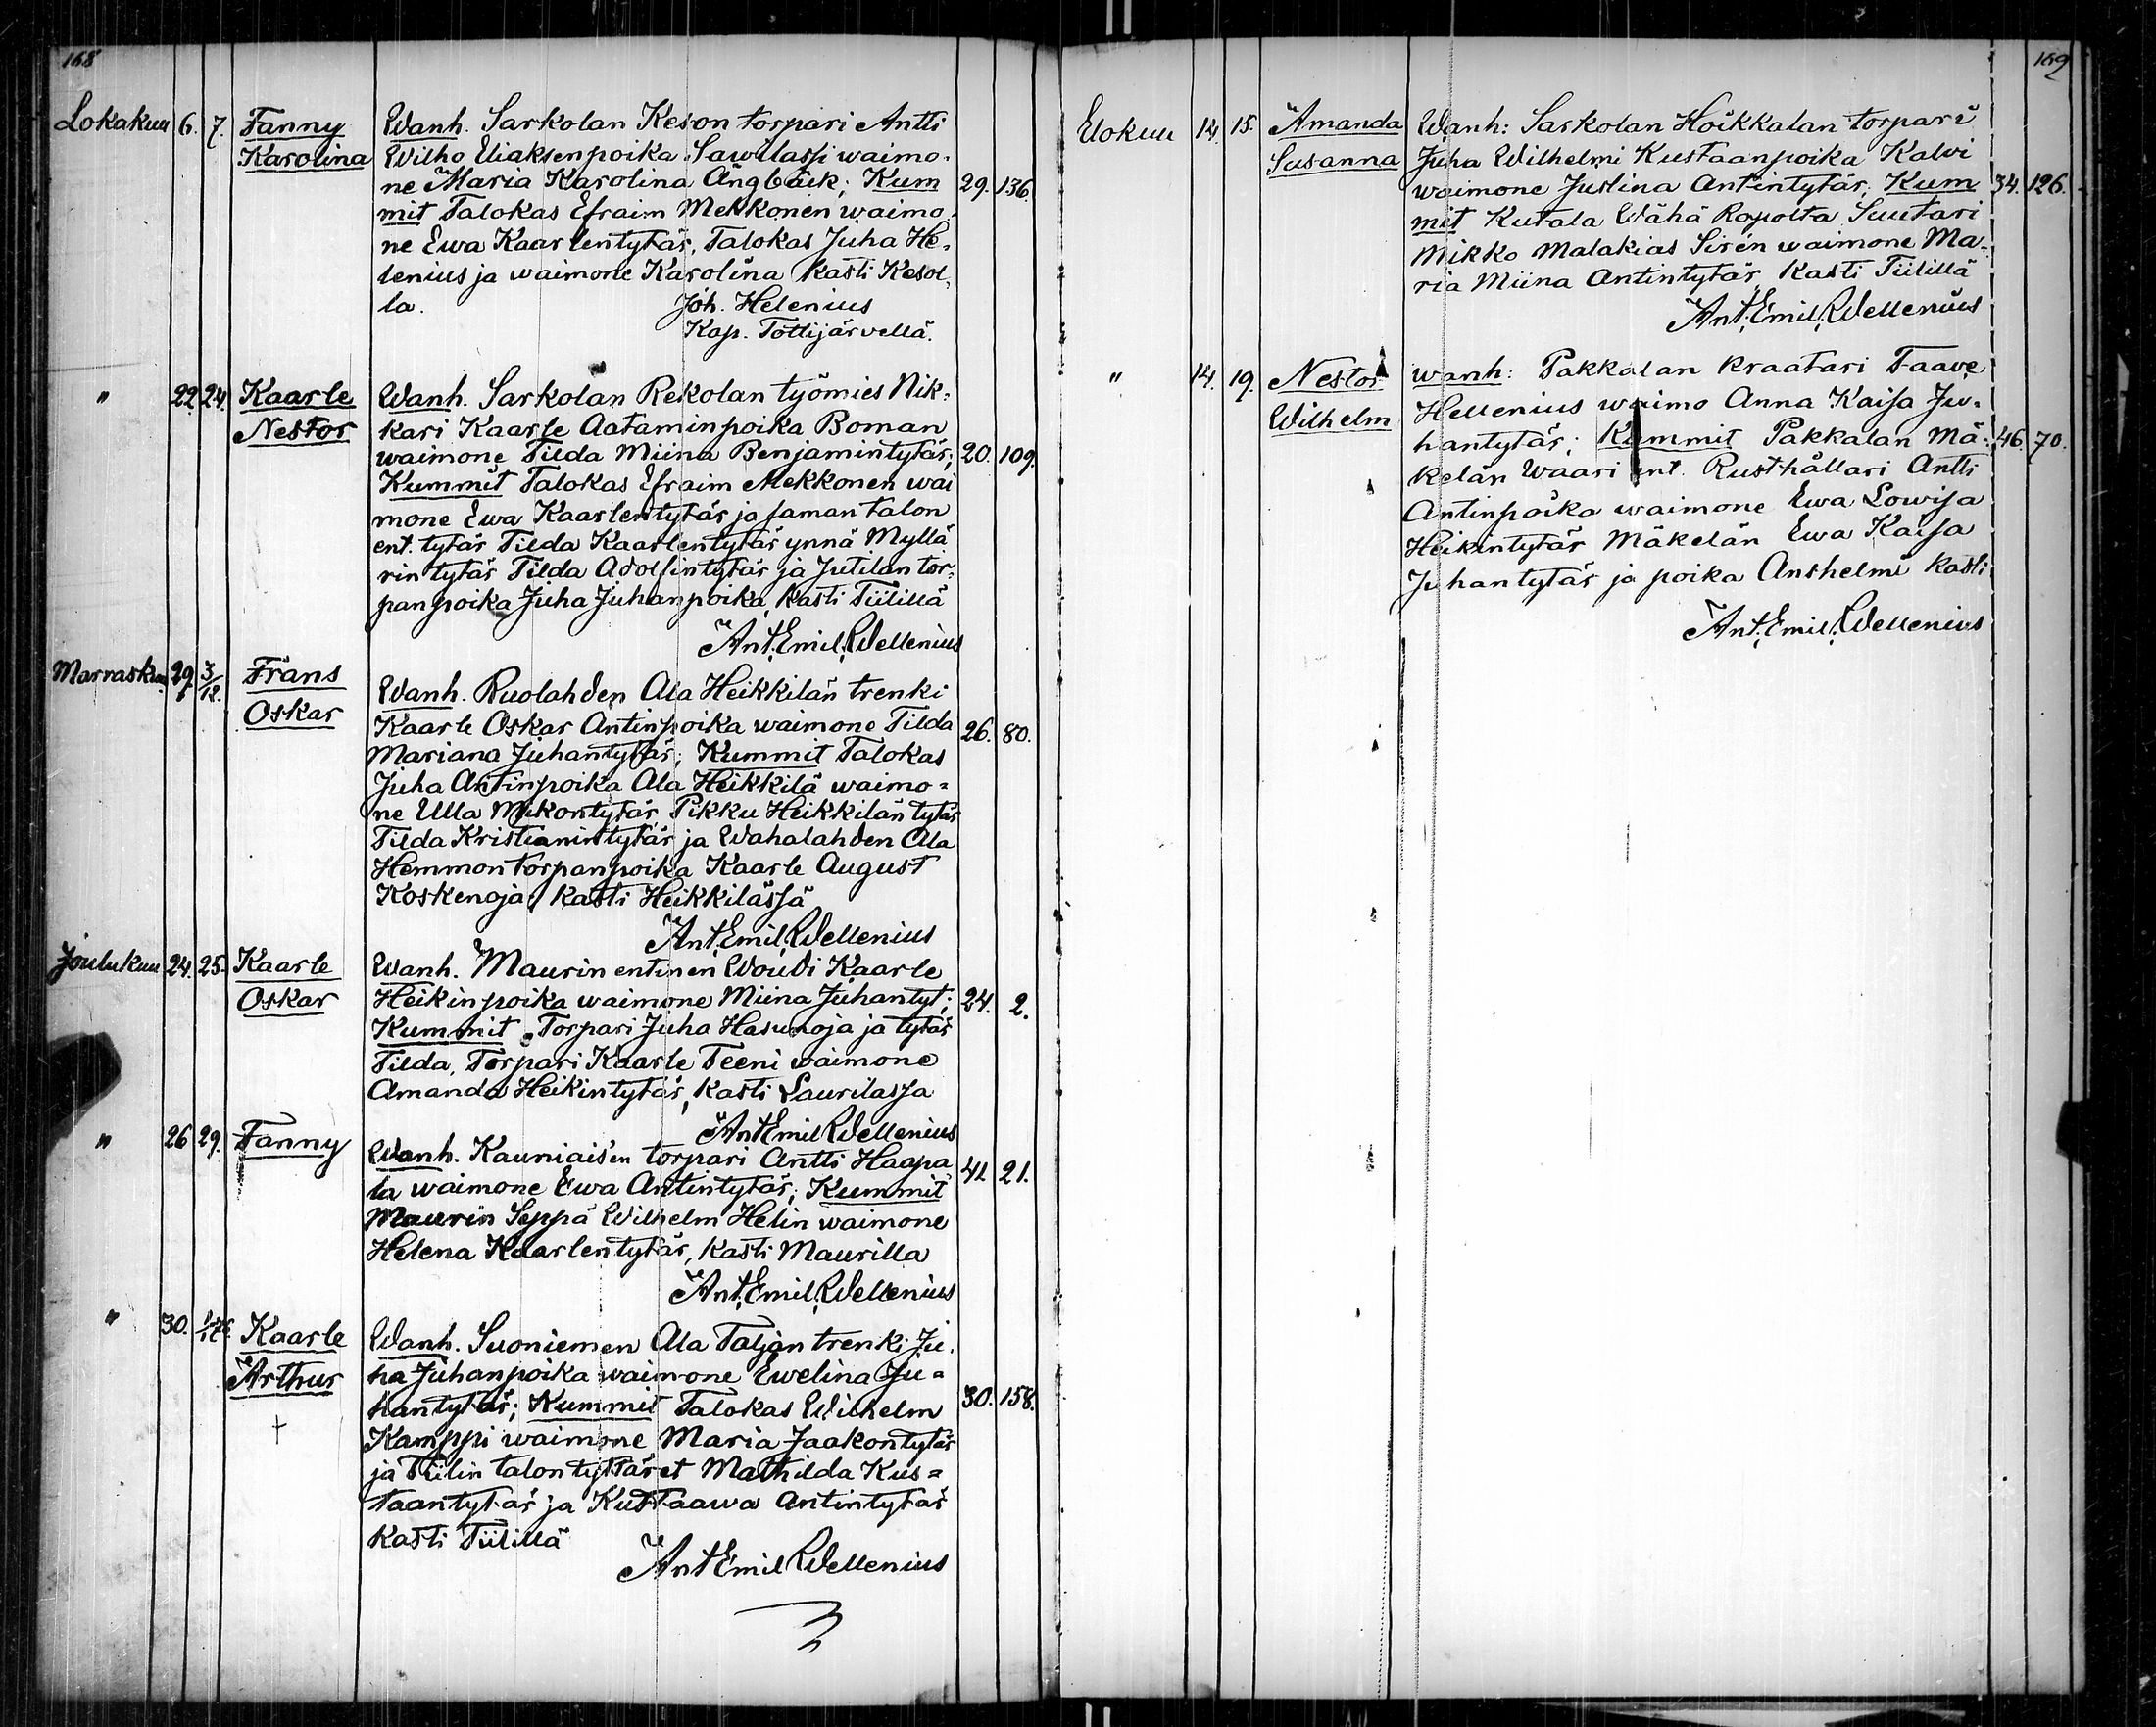 168
Lokakuu 6. 7. Fanny Wanh. Sarkolan Keson torpari Antti
Karolina Wilho Eliaksenpoika Sawilassi waimo-
ne Maria Karolina Ängbäck; Kum 29. 136.
mit Talokas Efraim Mekkonen waimo
ne Ewa Kaarlentytär, Talokas Juha He-
lenius ja waimone Karolina kasti Kesol-
la. Joh. Helenius
Kap. Tottijärvellä.
" 22 24. Kaarle Wanh. Sarkolan Rekolan työmies Nik-
Nestor kari Kaarle Aataminpoika Boman
waimone Tilda Miina Benjamintytär; 20. 109.
Kummit Talokas Efraim Mekkonen wai
mone Ewa Kaarlentytär ja saman talon
ent. tytär Tilda Kaarlentytär ynnä Myllä
rin tytär Tilda Adolfintytär ja Jutilan tor-
panpoika Juha Juhanpoika, kasti Tiilillä
Ant. Emil. Wellenius
Marraskuu 29 3/12. Frans
Oskar Wanh. Ruolahden Ala Heikkilän trenki
Kaarle Oskar Antinpoika waimone Tilda 26. 80.
Mariana Juhantytär; Kummit Talokas
Juha Antinpoika Ala Heikkilä waimo-
ne Ulla Mikontytär, Pikku Heikkilän tytär
Tilda Kristianintytär ja Wahalahden Ala
Hemmon torpanpoika Kaarle August
Koskenoja, kasti Heikkilässä
Ant. Emil. Wellenius
Joulukuu 24. 25. Kaarle Wanh. Maurin entinen Woudi Kaarle
Oskar Heikinpoika waimone Miina Juhantyt; 24. 2.
Kummit Torpari Juha Hasunoja ja tytär
Tilda, Torpari Kaarle Teeni waimone
Amanda Heikintytär, kasti Laurilassa
Ant Emil Wellenius
" 26 29. Fanny Wanh. Kauniaisen torpari Antti Haapa
la waimone Ewa Antintytär; Kummit 41 21.
Maurin Seppä Wilhelm Helin waimone
Helena Kaarlentytär, kasti Maurilla
Ant. Emil. Wellenius
" 30. Kaarle Wanh. Suoniemen Ala Taljan trenki Ju-
Arthur ha Juhanpoika waimone Ewelina Ju-
hantytär; Kummit Talokas Wilhelm 30. 158.
† Kamppi waimone Maria Jaakontytär
ja Tiilin talon tyttäret Mathilda Kus-
taantytär ja Kustaawa Antintytär
kasti Tiilillä
Ant Emil Wellenius
169
Elokuu 14. 15. Amanda Wanh: Sarkolan Hoikkalan torpari
Susanna Juha Wilhelmi Kustaanpoika Kalvi
waimone Justina Antintytär; Kum 34. 126.
mit Kutala Wähä Ropolta Suutari
Mikko Malakias Sirén waimone Ma-
ria Miina Antintytär kasti Tiilillä
Ant. Emil. Wellenius
" 14. 19. Nestor wanh: Pakkalan kraatari Taave
Wilhelm Hellenius waimo Anna Kaisa Ju-
hantytär; Kummit Pakkalan Mä- 46. 70.
kelän Waari ent. Rusthållari Antti
Antinpoika waimone Ewa Lowisa
Heikintytär Mäkelän Ewa Kaisa
Juhantytär ja poika Anshelmi kasti
Ant. Emil. Wellenius